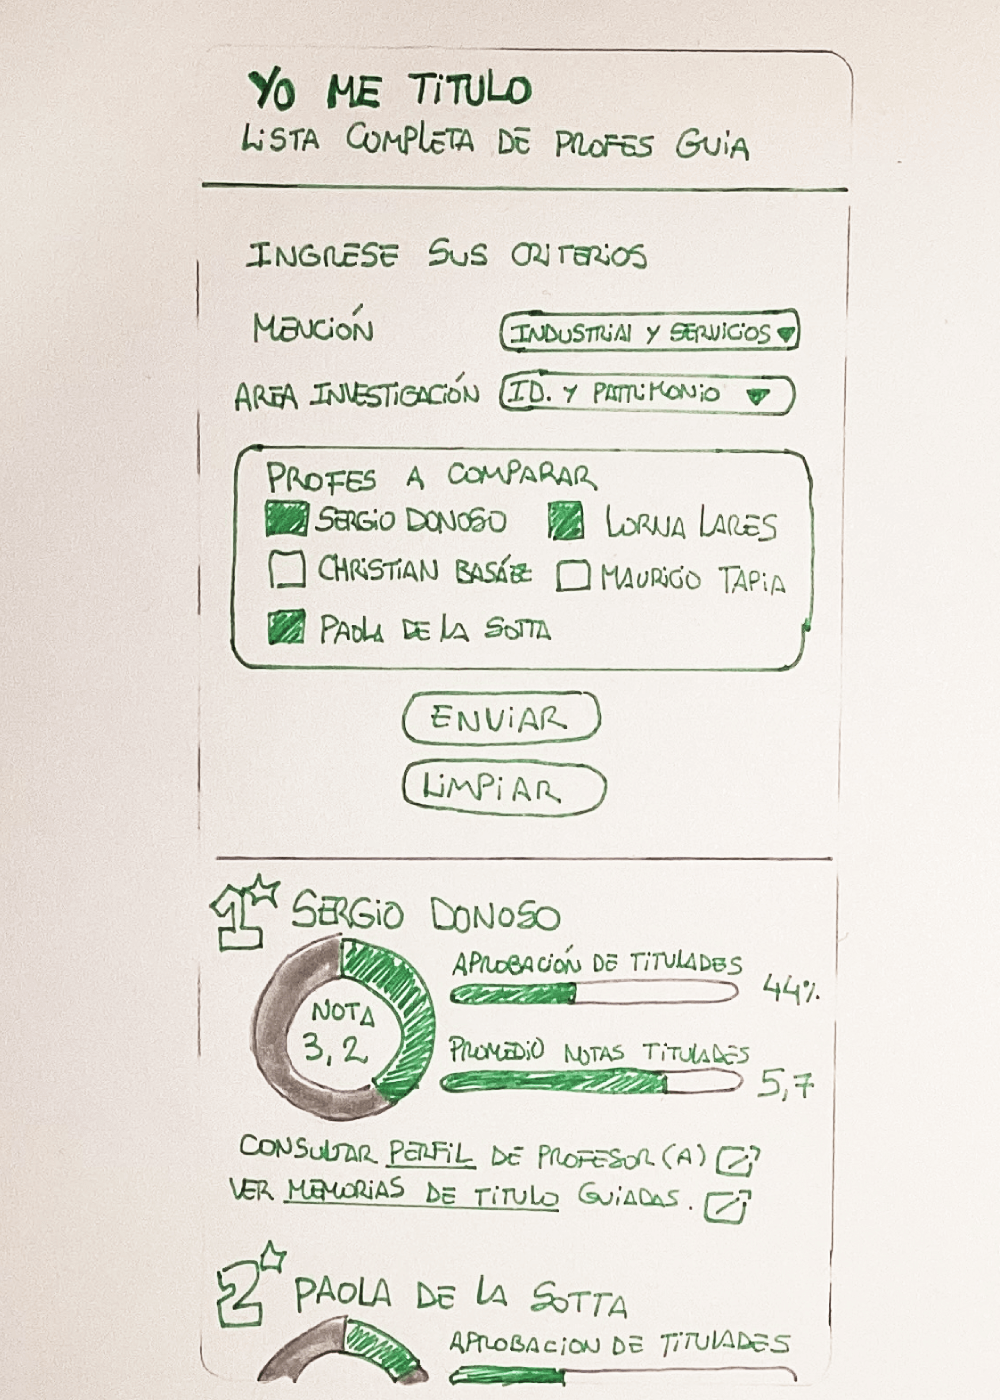 YO ME TITULO
LISTA COMPLETA DE PROFES GUIA
INGRESE SUS CRITERIOS
MENCIÓN
INDUSTRIAL Y SERVICIOS
AREA INVESTIGACIÓN
ID. Y PATRIMONIO
PROFES A COMPARAR
SERGIO DONOSO
LORNA LARES
CHRISTIAN BASÁEZ
MAURICIO TAPIA
PAOLA DE LA SOTTA
ENVIAR
LIMPIAR
1 SERGIO DONOSO
NOTA
3,2
APROBACIÓN DE TITULADES
44%.
PROMEDIO NOTAS TITULADES
5,7
CONSULTAR PERFIL DE PROFESOR(A)
VER MEMORIAS DE TITULO GUIADAS.
2 PAOLA DE LA SOTTA
APROBACION DE TITULADES